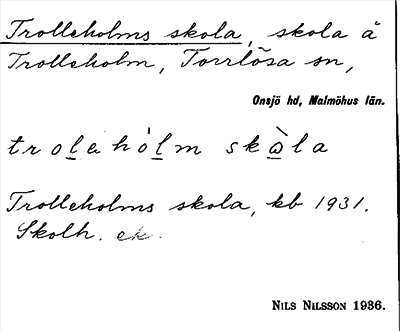 Trolleholms skola, skola å
Trolleholm, Torrlösa sn,
Onsjö hd, Malmöhus län.
troleholm skola
Trolleholms skola, kb 1931.
Skolh. ek.
NILS NILSSON 1936.